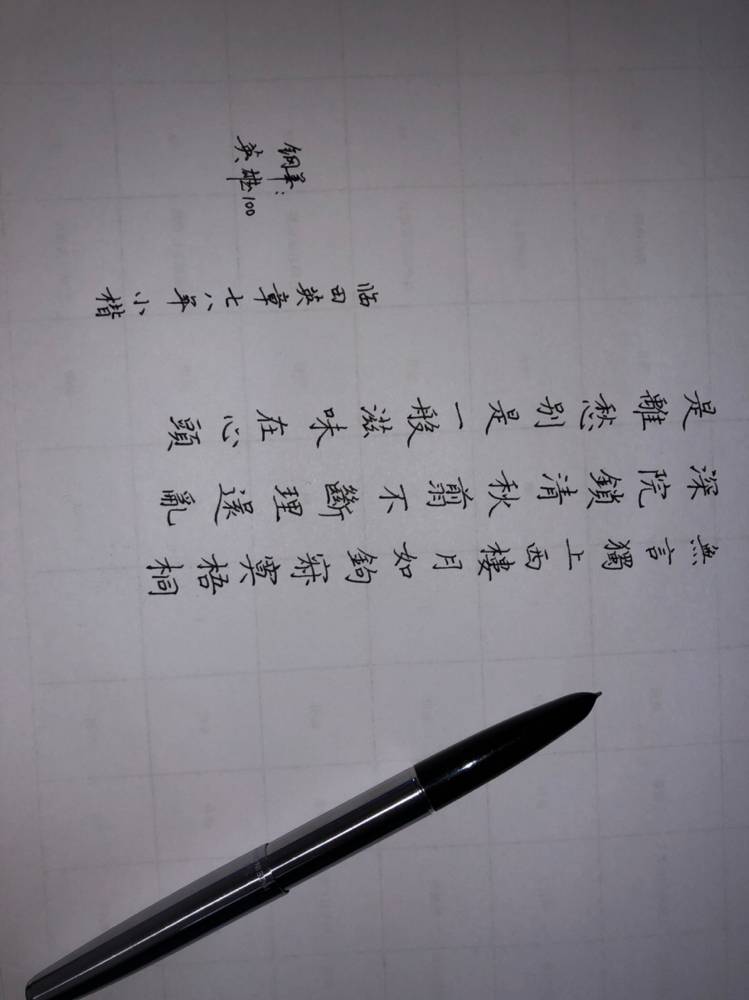 無言獨上西樓月如鉤寂寞梧桐
深院鎖清秋翦不斷理還亂
是離愁別是一般滋味在心頭
临田英章七八年小楷
钢笔：
英雄100